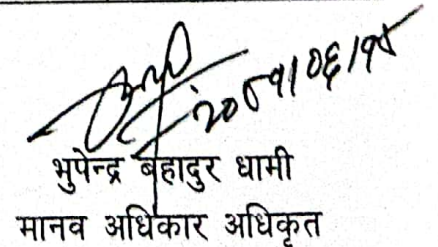 २०८१।०६।१५
भुपेन्द्र बहादुर धामी
मानव अधिकार अधिकृत